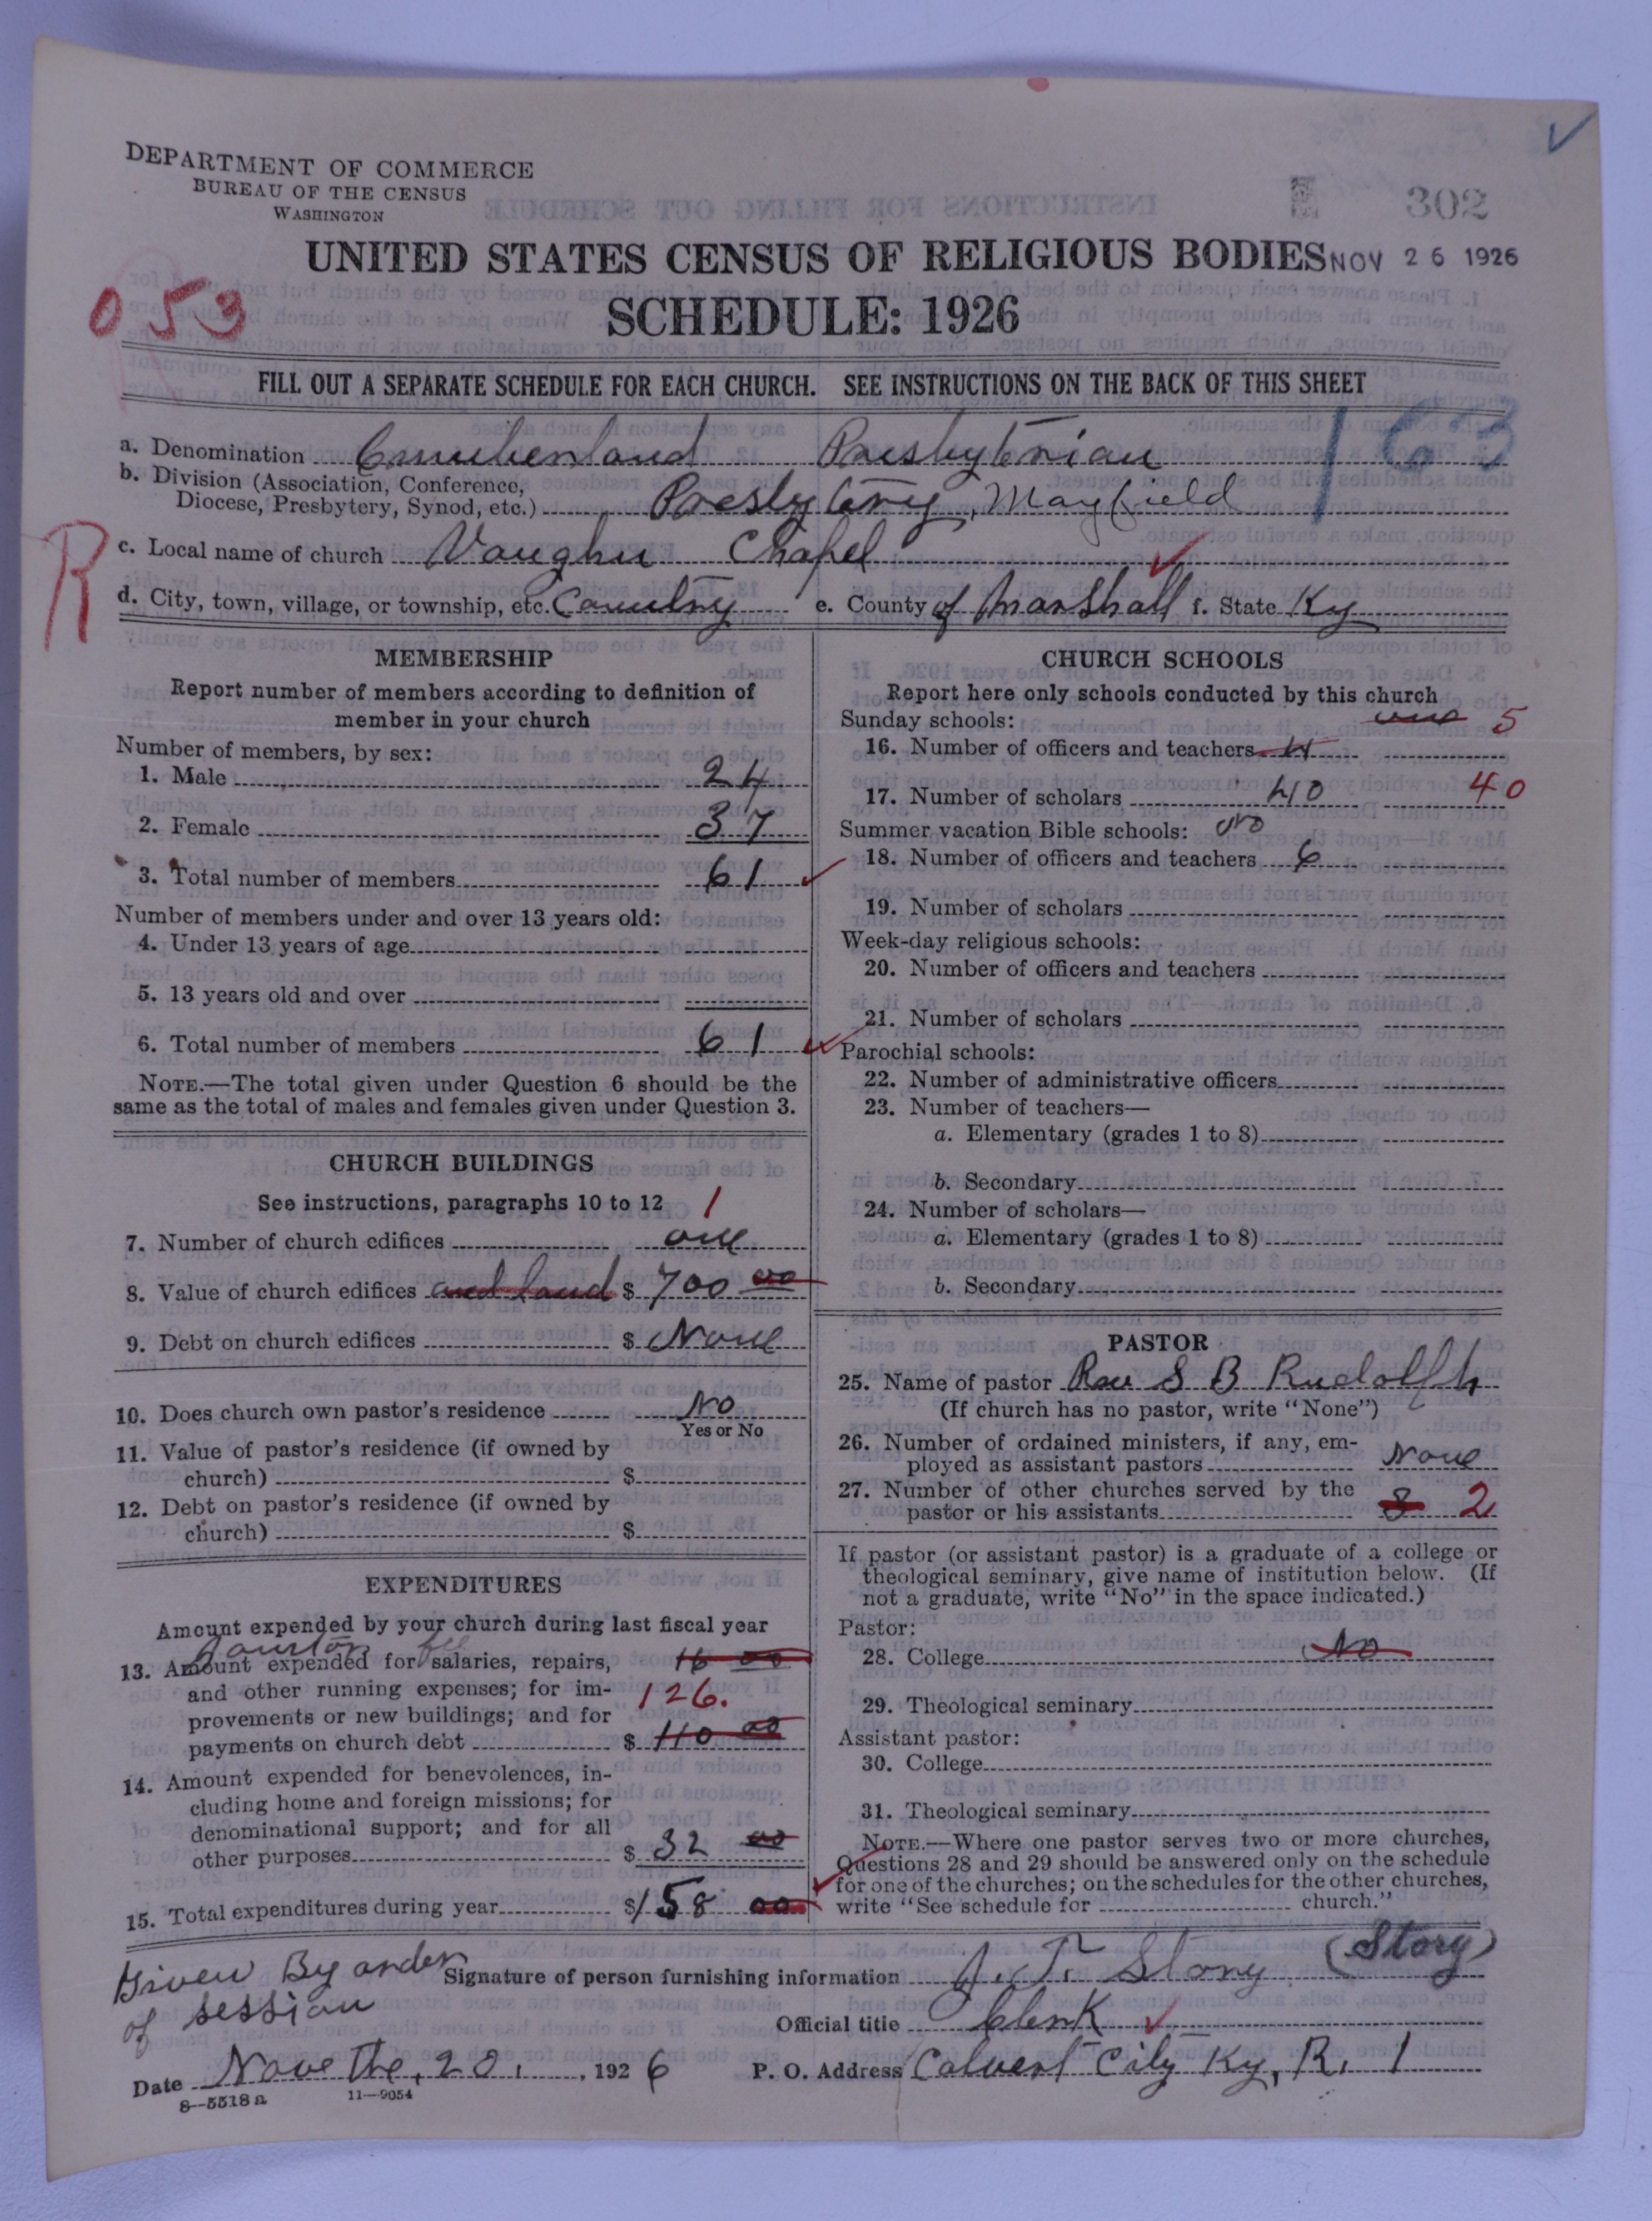 DEPARTMENT OF COMMERCE
BUREAU OF THE CENSUS
WASHINGTON
302
UNITED STATES CENSUS OF RELIGIOUS BODIES NOV 26 1926
053
SCHEDULE: 1926
FILL OUT A SEPARATE SCHEDULE FOR EACH CHURCH. SEE INSTRUCTIONS ON THE BACK OF THIS SHEET
163
a. Denomination Cumberland Presbyterian
b. Division (Association, Conference,
Diocese, Presbytery, Synod, etc.) Presbytery, Mayfield
R
c. Local name of church Vaughn Chapel
d. City, town, village, or township, etc. Country e. County of Marshall f. State Ky
MEMBERSHIP
Report number of members according to definition of
member in your church
Number of members, by sex:
1. Male 24
2. Female 37
3. Total number of members 61
Number of members under and over 13 years old:
4. Under 13 years of age
5. 13 years old and over
6. Total number of members 61
NOTE.—The total given under Question 6 should be the
same as the total of males and females given under Question 3.
CHURCH BUILDINGS
See instructions, paragraphs 10 to 12 1
7. Number of church edifices one
8. Value of church edifices and land $ 700 00
9. Debt on church edifices $ None
10. Does church own pastor's residence No
Yes or No
11. Value of pastor's residence (if owned by
church) $
12. Debt on pastor's residence (if owned by
church) $
EXPENDITURES
Amount expended by your church during last fiscal year
13. Amount expended for salaries, repairs, 16 00
and other running expenses; for im- 126.
provements or new buildings; and for
payments on church debt $ 110 00
14. Amount expended for benevolences, in-
cluding home and foreign missions; for
denominational support; and for all
other purposes $ 32 00
15. Total expenditures during year $ 158 00
CHURCH SCHOOLS
Report here only schools conducted by this church
Sunday schools: 5
16. Number of officers and teachers 4
17. Number of scholars 40 40
Summer vacation Bible schools: no
18. Number of officers and teachers 6
19. Number of scholars
Week-day religious schools:
20. Number of officers and teachers
21. Number of scholars
Parochial schools:
22. Number of administrative officers
23. Number of teachers—
a. Elementary (grades 1 to 8)
b. Secondary
24. Number of scholars—
a. Elementary (grades 1 to 8)
b. Secondary
PASTOR
25. Name of pastor Rev S B Rudolfh
(If church has no pastor, write "None")
26. Number of ordained ministers, if any, em-
ployed as assistant pastors None
27. Number of other churches served by the
pastor or his assistants 3 2
If pastor (or assistant pastor) is a graduate of a college or
theological seminary, give name of institution below. (If
not a graduate, write "No" in the space indicated.)
Pastor:
28. College No
29. Theological seminary
Assistant pastor:
30. College
31. Theological seminary
NOTE.—Where one pastor serves two or more churches,
Questions 28 and 29 should be answered only on the schedule
for one of the churches; on the schedules for the other churches,
write "See schedule for church."
Given By order
of session
Signature of person furnishing information J. T. Story (Story)
Official title Clerk
Date Nove The, 20, 1926 P. O. Address Calvert City Ky, R. 1
8—5518a 11—9054